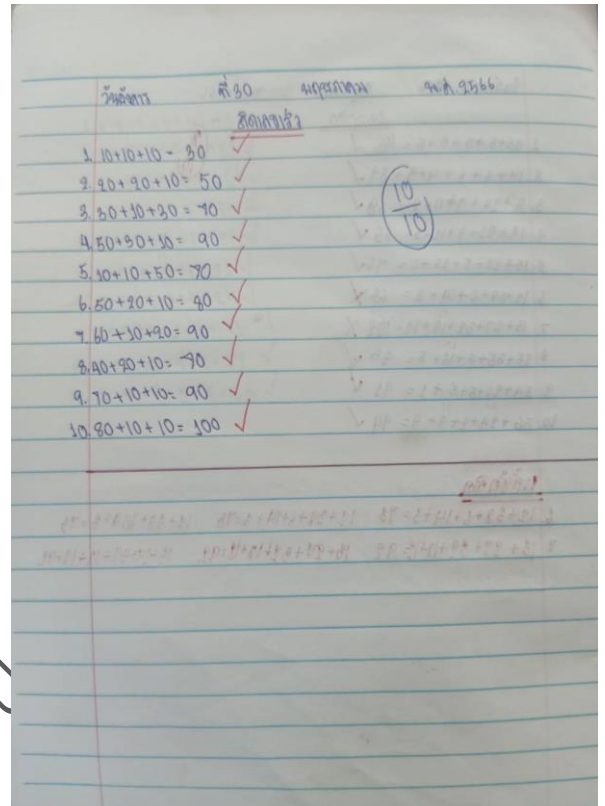 วันอังคาร ที่ 30 พฤษภาคม พ.ศ. 2566
คิดเลขเร็ว
1. 10+10+10 = 30
2. 20+20+10= 50
3. 30+10+30= 70
4. 50+30+10= 90
5. 10+10+50= 70
6. 50+20+10= 80
7. 60+10+20= 90
8. 40+20+10= 70
9. 70+10+10= 90
10. 80+10+10= 100
10
10